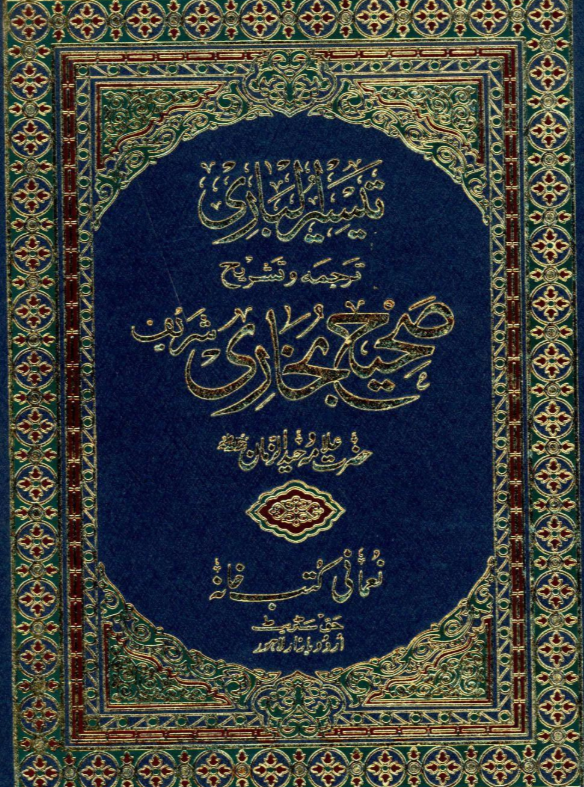 تيسير الباري
ترجمه و تشریح
صَحِيح بُخَاری شریف
حضرت علامہ وحید الزمان
نعمانی کتب خانہ
حق سٹریٹ
اردو بازار لاہور